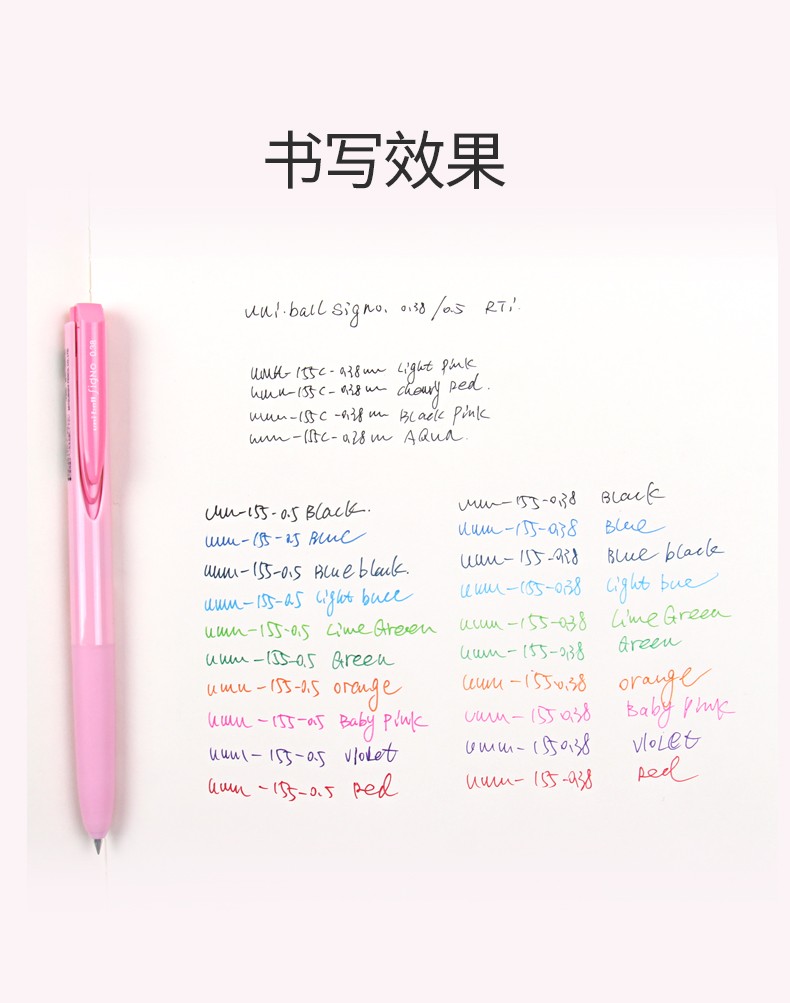 书写效果
uni-ball SIGNO 0.38
uni.ball signo. 0.38/0.5 RTi.
umn-155c-0.38mm Light Pink
umn-155c-0.38mm cherry Red.
umn-155c-0.38mm Black Pink
umn-155c-0.28m AQUA.
umn-155-0.5 Black.
umn-155-0.5 Blue
umn-155-0.5 Blue black.
umn-155-0.5 Light buee
umn-155-0.5 Lime Green
umn-155-0.5 Green
umn-155-0.5 orange
umn-155-0.5 Baby Pink
umn-155-0.5 violet
umn-155-0.5 Red
umn-155-0.38 Black
umn-155-0.38 Blue
umn-155-0.38 Blue black
umn-155-0.38 Light bue
umn-155-0.38 Lime Green
umn-155-0.38 Green
umn-155-0.38 orange
umn-155-0.38 Baby Pink
umn-155-0.38 violet
umn-155-0.38 Red